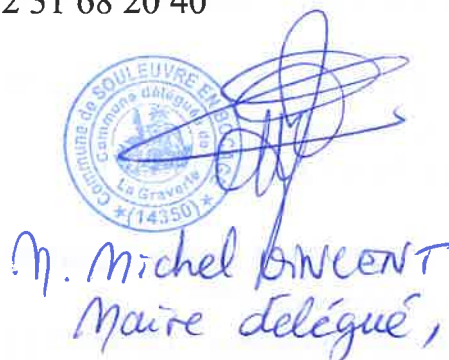 2 31 68 20 40
Commune de SOULEUVRE EN BOCAGE
Commune déléguée de
La Graverie
*(14350)*
M. Michel VINCENT
Maire délégué,